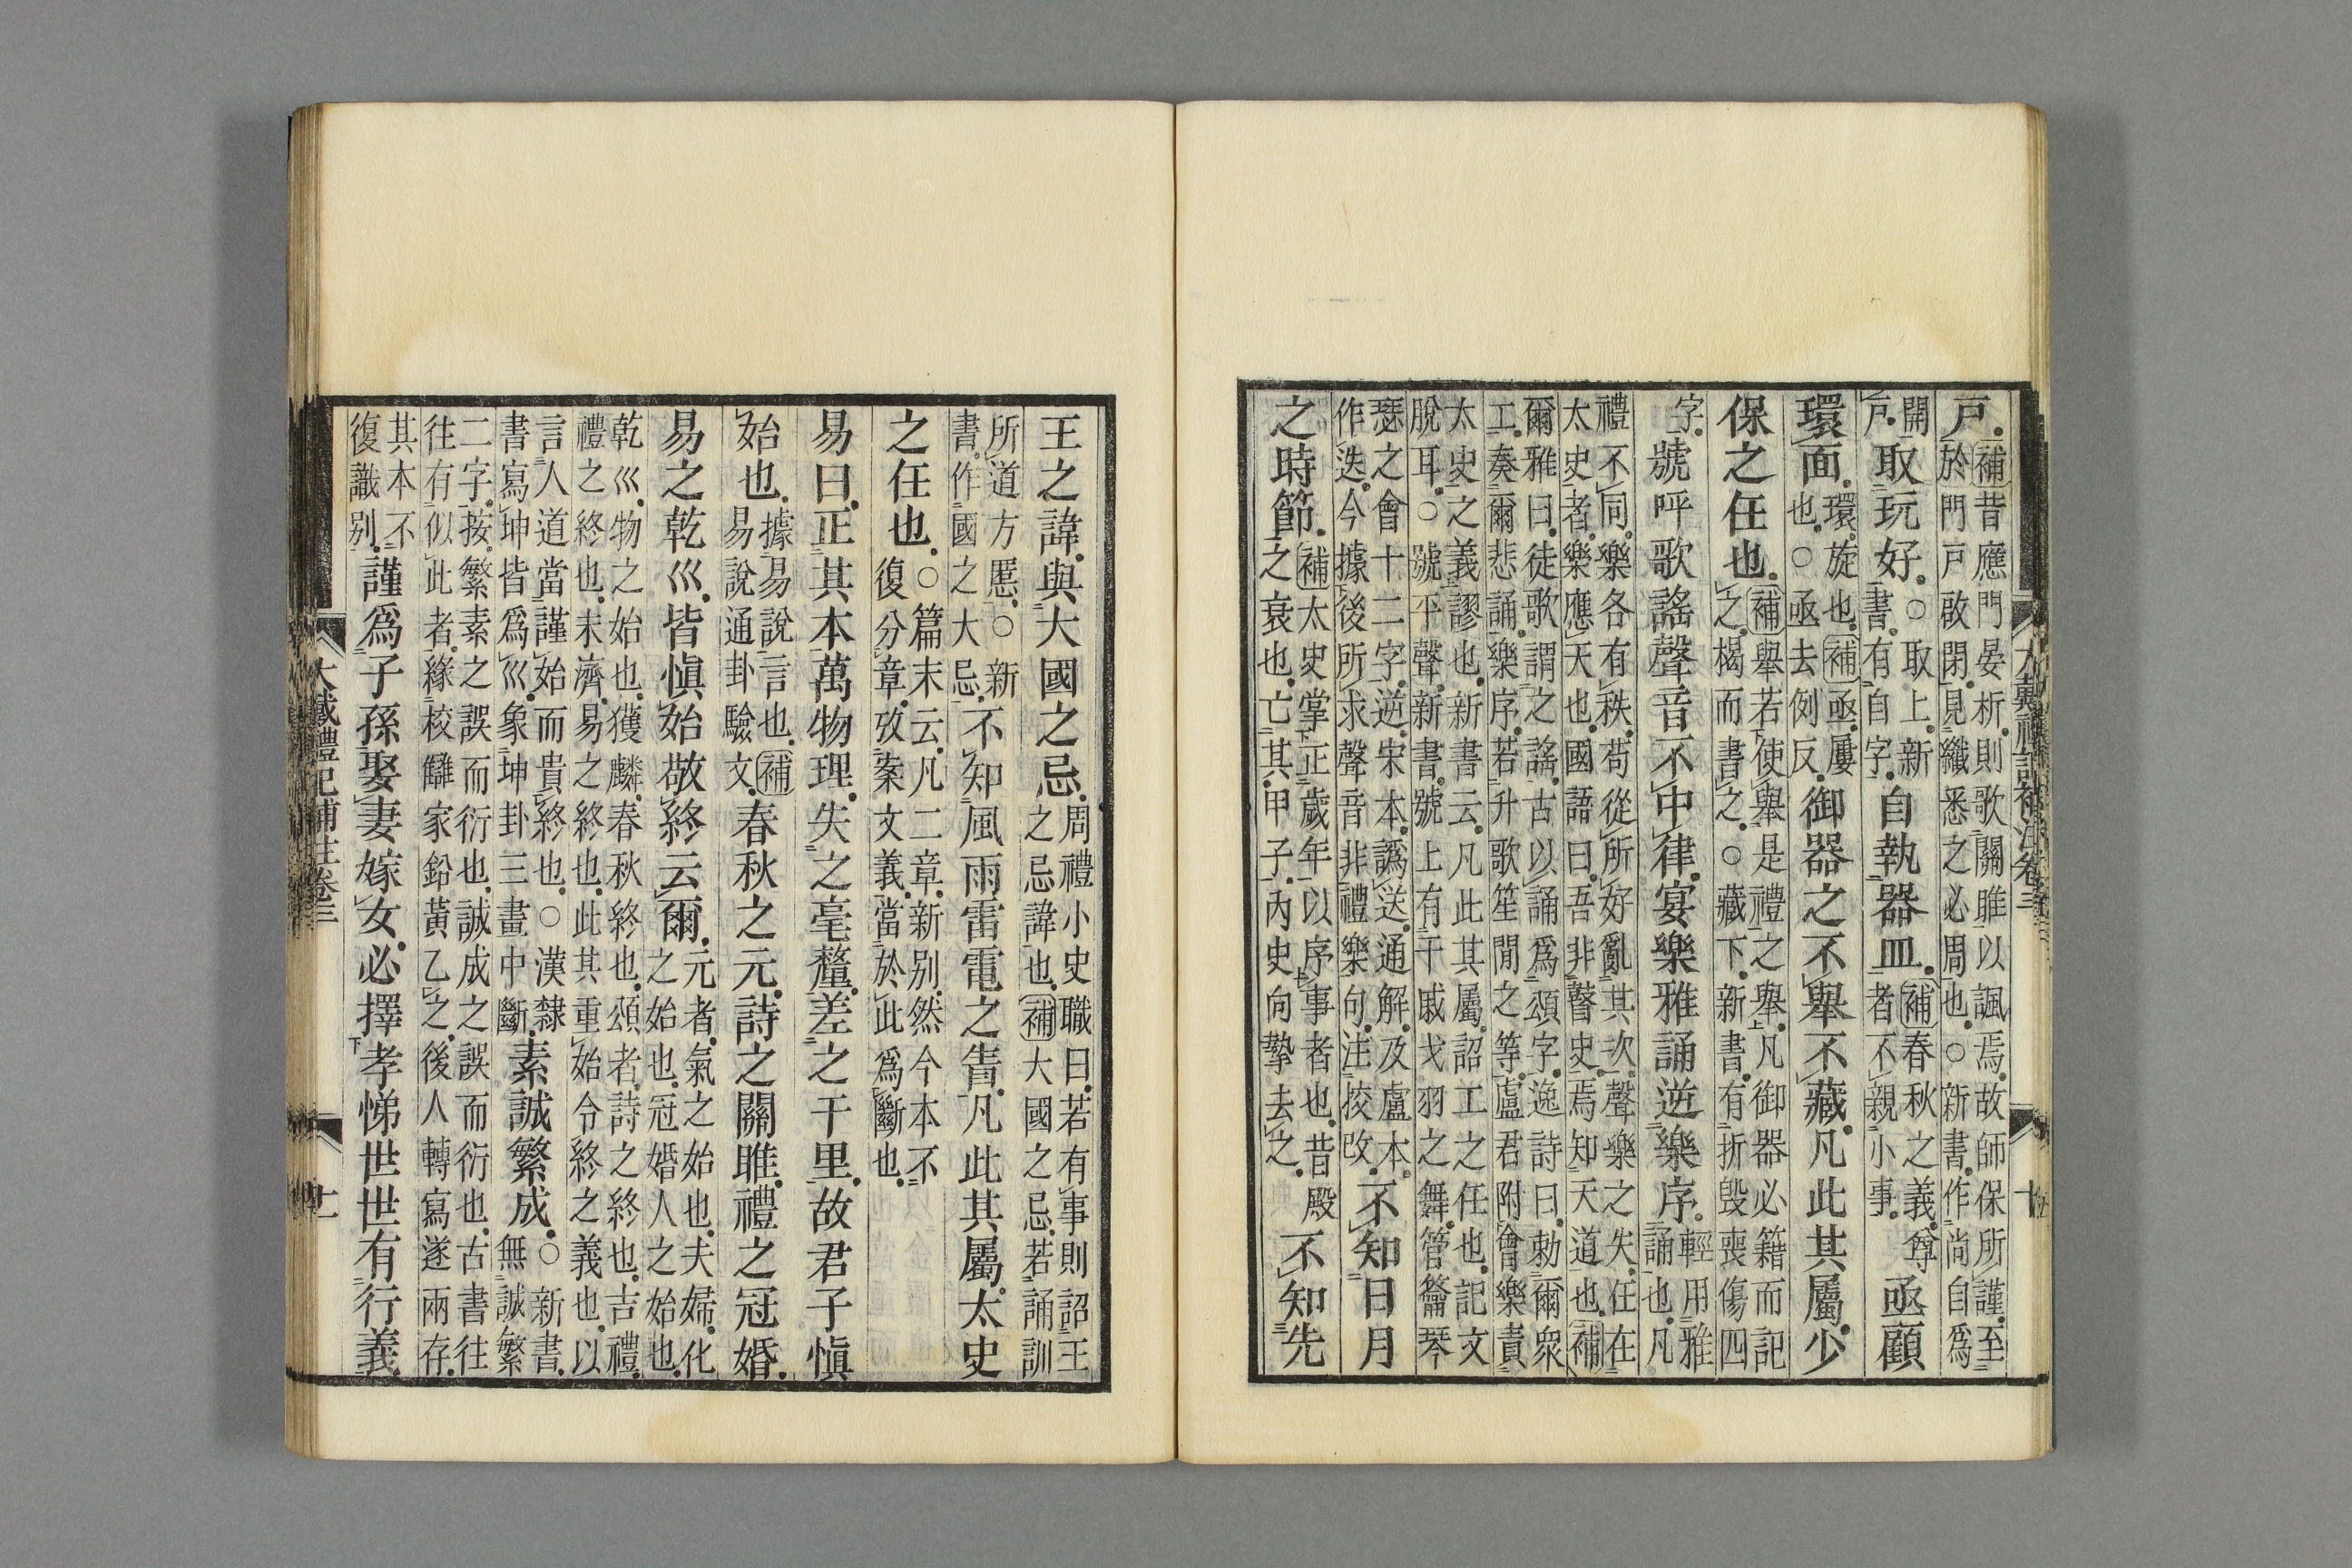 戶補昔應門晏析則歌關雎以諷焉故師保所謹至
於門戸啟閉見纖悉之必周也○新書作尚自爲
開戸取玩好○取上新書有自字自執器皿補春秋之義尊者不親小事亟顧
環面環旋也補亟屢也○亟去例反御器之不舉不藏凡此其屬少
保之任也補舉若使舉是禮之舉凡御器必籍而記之楬而書之○藏下新書有折毁喪傷四
字號呼歌謠聲音不中律宴樂雅誦逆樂序輕用雅誦也凡
禮不同樂各有秩苟從所好亂其次聲樂之失任在
太史者樂應天也國語曰吾非瞽史焉知天道也補
爾雅曰徒歌謂之謠古以誦爲頌字逸詩曰勅爾衆
工奏爾悲誦樂序若升歌笙閒之等盧君附會樂責
太史之義謬也新書云凡此其屬詔工之任也記文
脫耳○號平聲新書號上有干戚戈羽之舞管籥琴
瑟之會十二字逆宋本譌送通解及盧本
作迭今據後所求聲音非禮樂句注挍改不知日月
之時節補太史掌正歲年以序事者也昔殷之衰也亡其甲子內史向摯去之不知先
王之諱與大國之忌周禮小史職曰若有事則詔王之忌諱也補大國之忌若誦訓
所道方慝○新書作國之大忌不知風雨雷電之眚凡此其屬太史
之任也○篇末云凡二章新别然今本不復分章攷案文義當於此爲斷也
易曰正其本萬物理失之毫釐差之千里故君子愼
始也據易說言也補易說通卦驗文春秋之元詩之關雎禮之冠婚
易之乾巛皆愼始敬終云爾元者氣之始也夫婦化之始也冠婚人之始也
乾巛物之始也獲麟春秋終也頌者詩之終也吉禮
禮之終也未濟易之終也此其重始令終之義也以
言人道當謹始而貴終也○漢隸
書寫坤皆爲巛象坤卦三畫中斷素誠繁成○新書無誠繁
二字按繁素之誤而衍也誠成之誤而衍也古書往
往有似此者緣校讎家鉛黃乙之後人轉寫遂兩存
其本不復識别謹爲子孫娶妻嫁女必擇孝悌世世有行義
大戴禮記補注卷三
十
大戴禮記補注卷三
十一